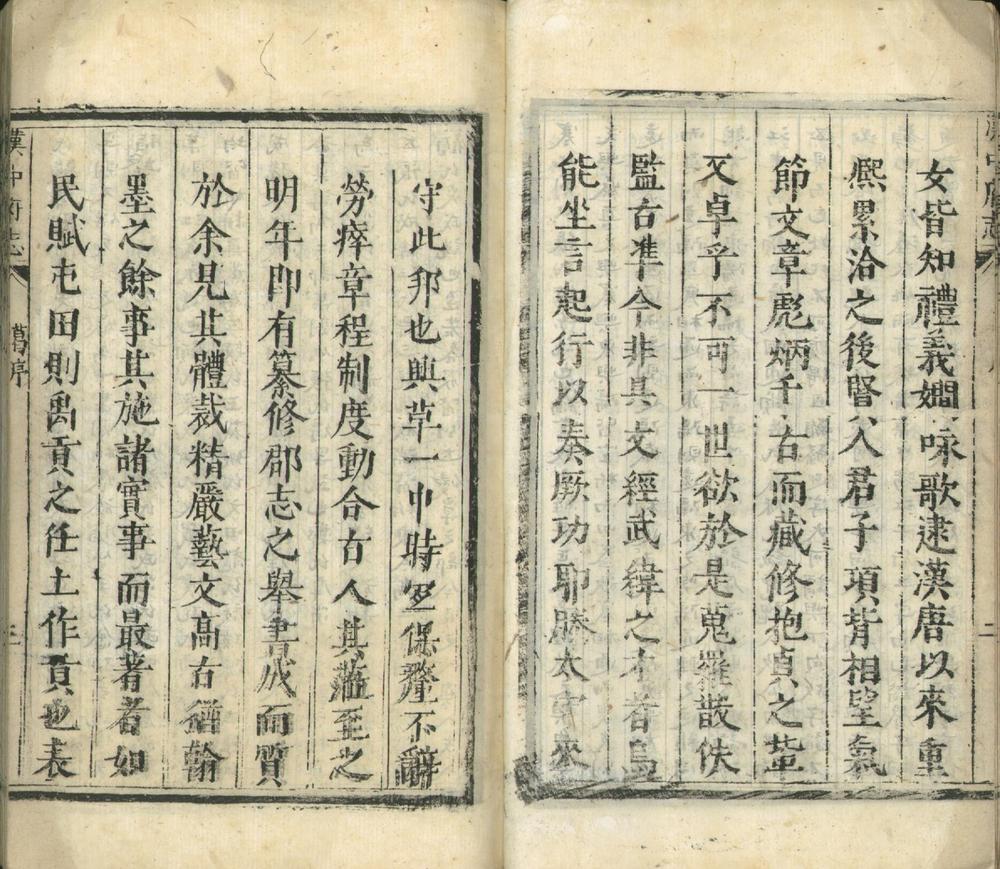 女皆知禮義嫺咏歌逮漢唐以來重
熈累洽之後賢人君子項背相望氣
節文章彪炳千古而藏修抱貞之輩
又卓乎不可一世欲於是蒐羅散佚
監古準今非具文經武緯之才者烏
能坐言起行以奏厥功耶勝太守來
守此邦也與草一中時罗保釐不辭
勞瘁章程制度動合古人其蒞至之
明年即有纂修郡志之舉書成而質
於余見其體裁精嚴藝文高古猶翰
墨之餘事其施諸實事而最著者如
民賦屯田則禹貢之任土作貢也表
漢中府志
葛序
三
漢中府志
二